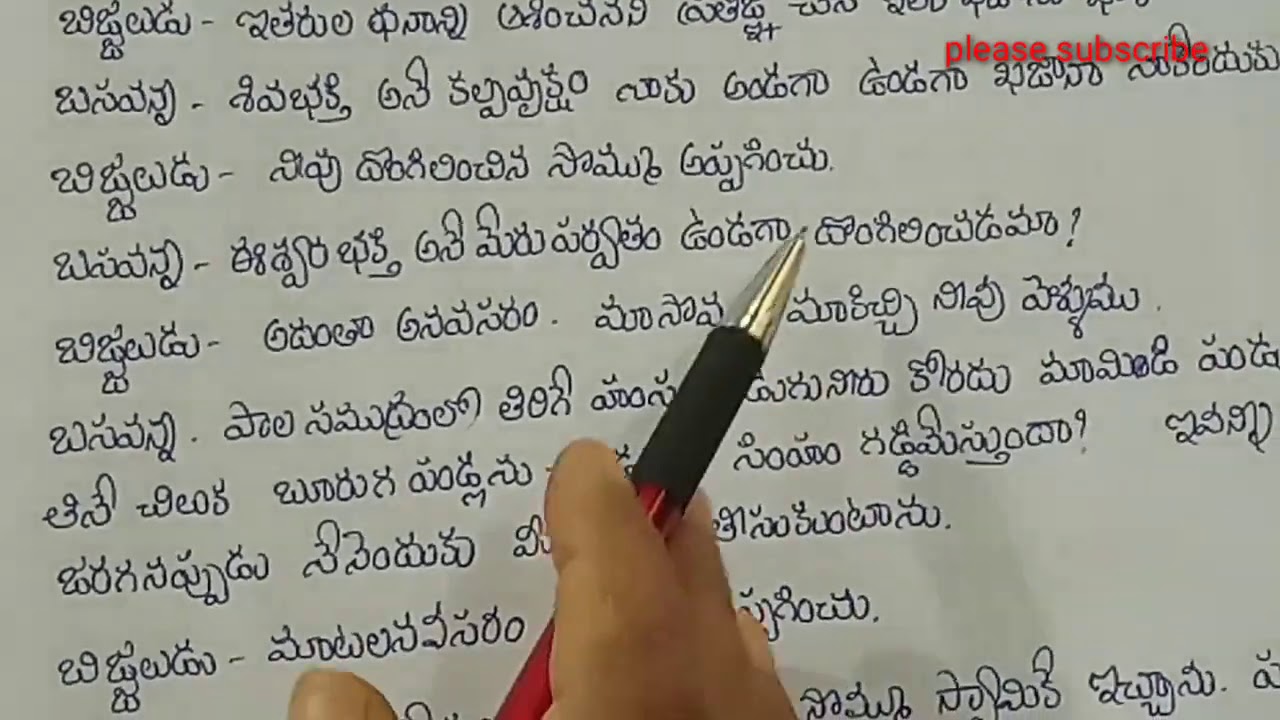 బిజ్జలుడు - ఇతరుల ధనాన్ని ఆశించనని ప్రతిజ్ఞ
please subscribe
బసవన్న - శివభక్తి అనే కల్పవృక్షం నాకు అండగా ఉండగా ఖజానా నాకెందుకు
బిజ్జలుడు - నీవు దొంగిలించిన సొమ్ము అప్పగించు.
బసవన్న - ఈశ్వర భక్తి అనే మేరు పర్వతం ఉండగా దొంగిలించడమా?
బిజ్జలుడు - అదంతా అనవసరం. మా మాకిచ్చి నీవు వెళ్ళుము.
బసవన్న. పాల సముద్రంలో తిరిగే హంస కోరదు మామిడి పండు
తినే చిలుక బూరుగ పండ్లను సింహం గడ్డిమేస్తుందా? ఇవన్నీ
జరగనప్పుడు నేనెందుకు తీసుకుంటాను.
బిజ్జలుడు - మాటలనవసరం
సొమ్ము స్వామికే ఇచ్చాను.